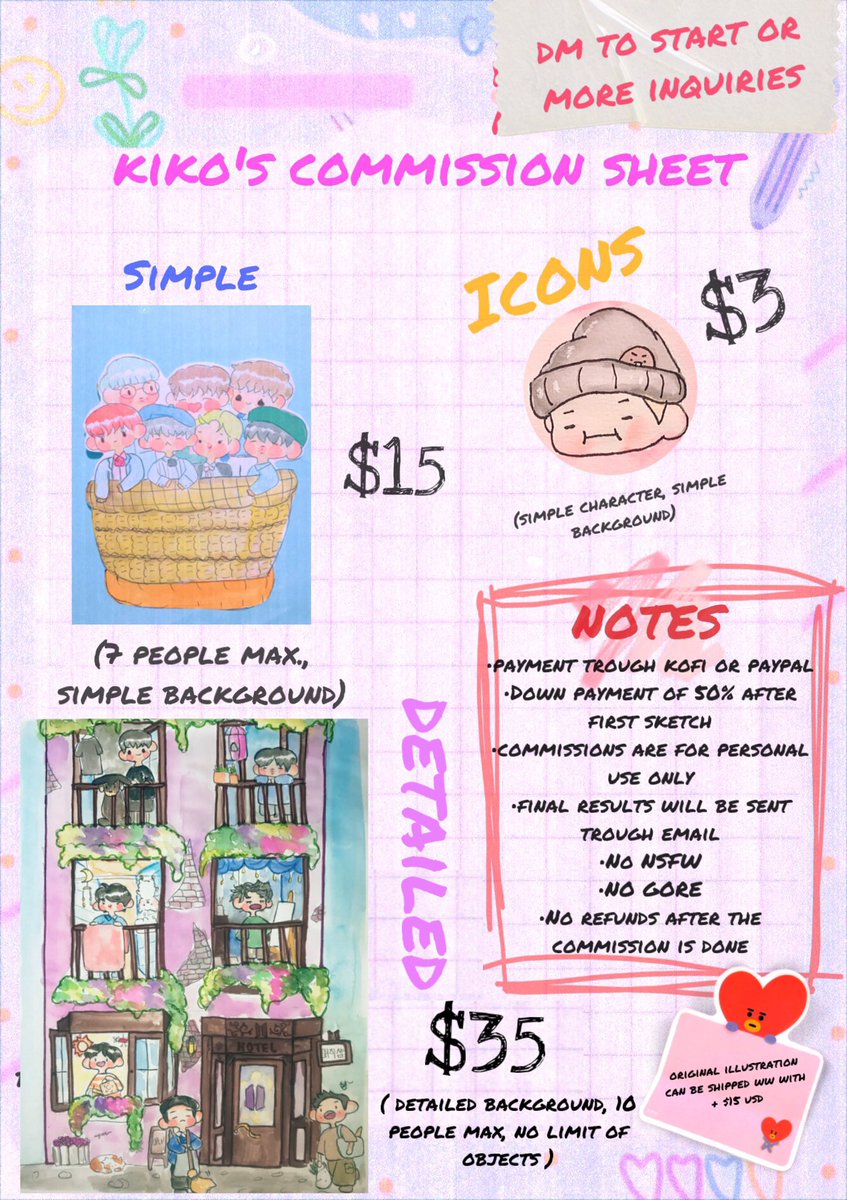 DM TO START OR
MORE INQUIRIES
KIKO'S COMMISSION SHEET
SIMPLE
ICONS
$3
$15
(SIMPLE CHARACTER, SIMPLE
BACKGROUND)
(7 PEOPLE MAX.,
SIMPLE BACKGROUND)
NOTES
•PAYMENT TROUGH KOFI OR PAYPAL
•DOWN PAYMENT OF 50% AFTER
FIRST SKETCH
•COMMISSIONS ARE FOR PERSONAL
USE ONLY
•FINAL RESULTS WILL BE SENT
TROUGH EMAIL
•NO NSFW
•NO GORE
•NO REFUNDS AFTER THE
COMMISSION IS DONE
DETAILED
HOTEL
$35
( DETAILED BACKGROUND, 10
PEOPLE MAX, NO LIMIT OF
OBJECTS )
ORIGINAL ILLUSTRATION
CAN BE SHIPPED WW WITH
+ $15 USD